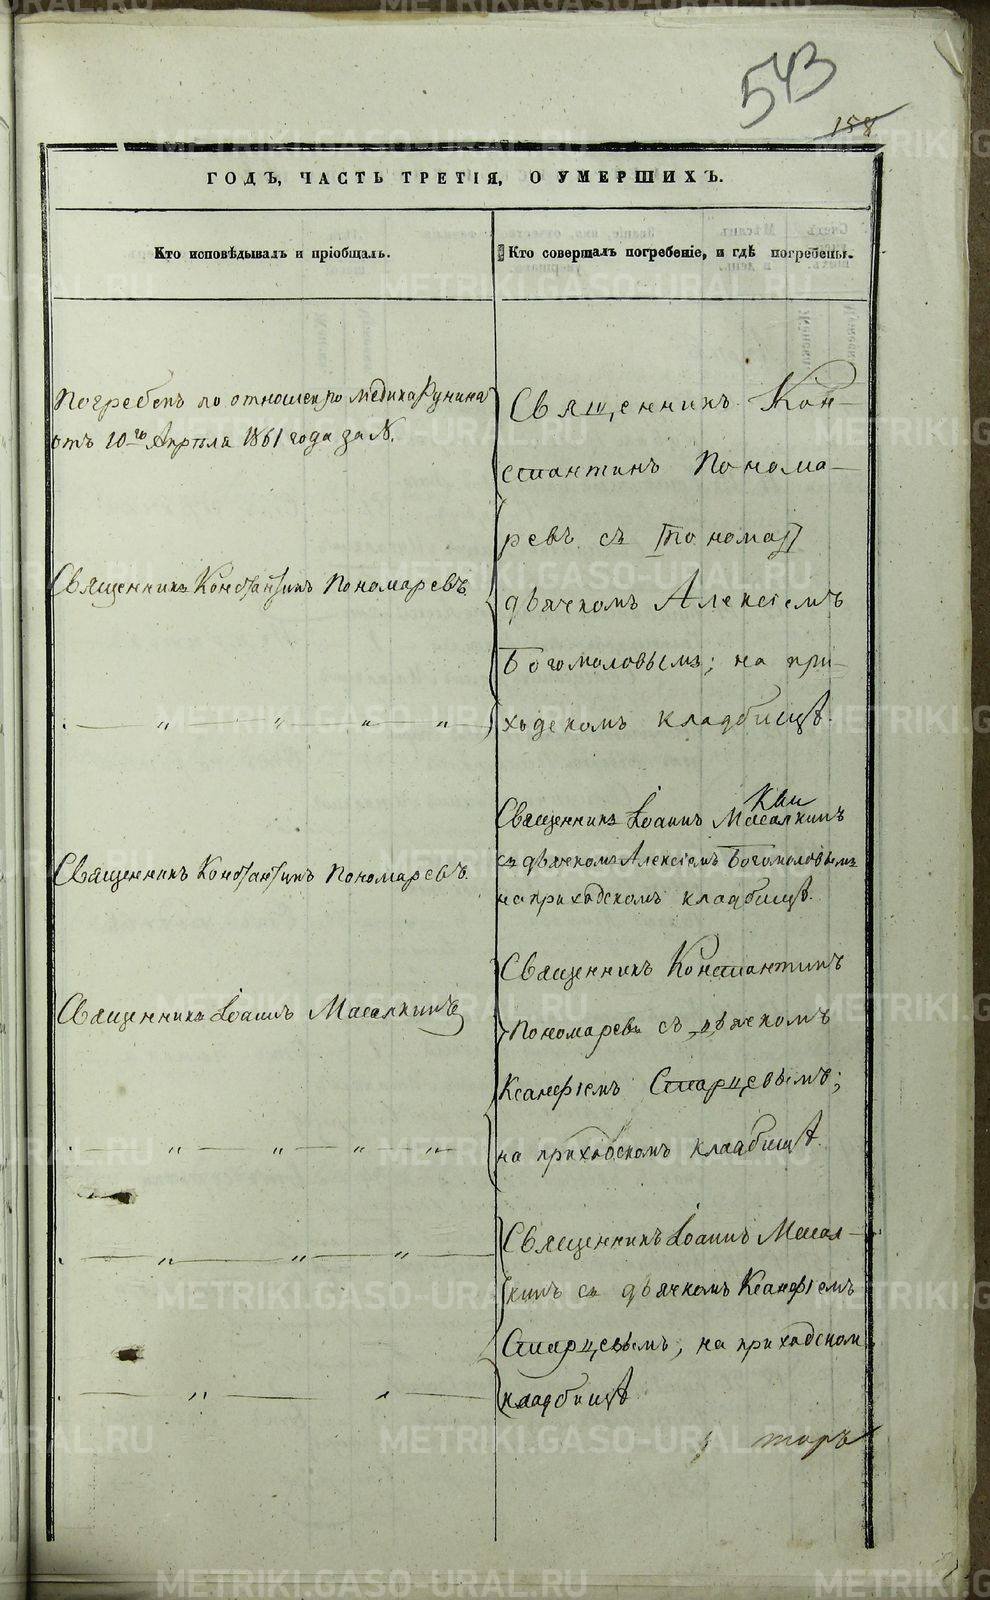 543
158
ГОДЪ, ЧАСТЬ ТРЕТІЯ, О УМЕРШИХЪ.
Кто исповѣдывалъ и пріобщалъ.
Кто совершалъ погребеніе, и гдѣ погребены.
Погребенъ по отношенію медика Рунина
отъ 10го Апрѣля 1861 года за N.
Священникъ Константинъ Пономаревъ
Священникъ Константинъ Пономаревъ.
Священникъ Іоаннъ Масалкинъ
Священникъ Кон-
стантинъ Понома-
ревъ съ
дьячкомъ Алексіемъ
Богомоловымъ; на при-
ходскомъ кладбищѣ.
Священникъ Іоаннъ Масалкинъ
съ дьячкомъ Алексіемъ Богомоловымъ
на приходскомъ кладбищѣ.
Священникъ Константинъ
Пономаревъ съ дьячкомъ
Ксанфіемъ Старцевымъ;
на приходскомъ кладбищѣ.
Священникъ Іоаннъ Масал-
кинъ съ дьячкомъ Ксанфіемъ
Старцевымъ, на приходском
кладбищѣ
METRIKI.GASO-URAL.RU